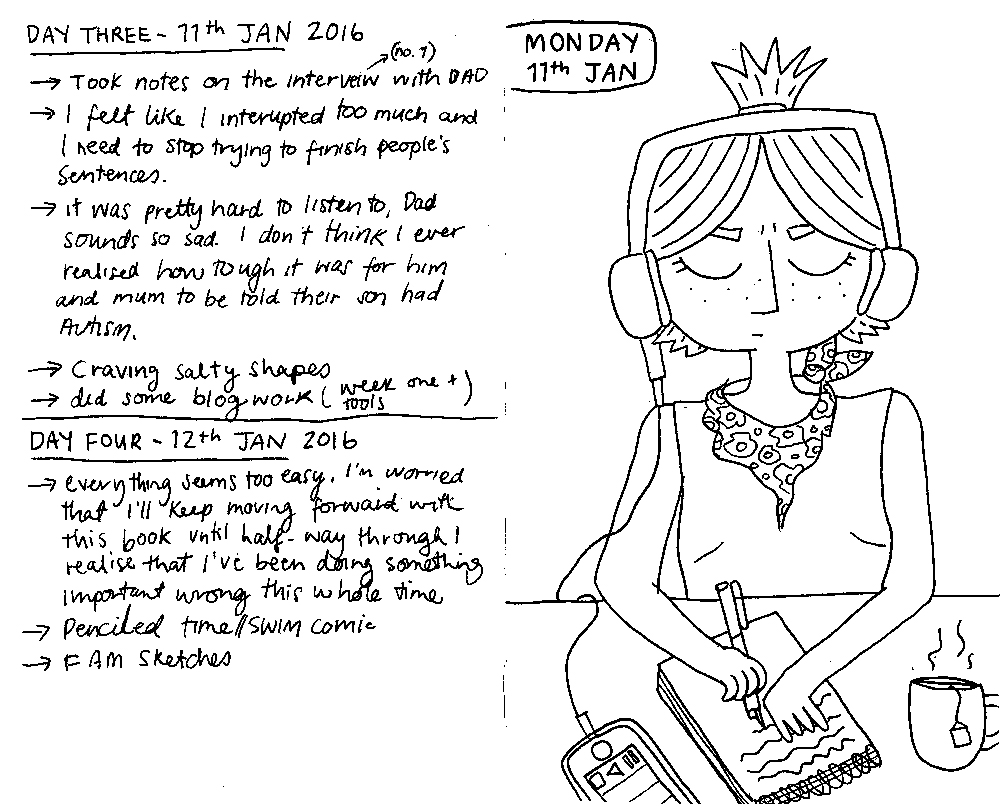 DAY THREE - 11th JAN 2016
(no. 1)
→ Took notes on the interveiw with DAD
→ I felt like I interupted too much and
I need to stop trying to finish people's
sentences.
→ it was pretty hard to listen to, Dad
sounds so sad. I don't think I ever
realised how tough it was for him
and mum to be told their son had
Autism.
→ Craving salty shapes
→ did some blog work (week one +
tools)
DAY FOUR - 12th JAN 2016
→ everything seems too easy. I'm worried
that I'll keep moving forward with
this book until half-way through I
realise that I've been doing something
important wrong this whole time
→ Penciled time//SWIM comic
→ FAM Sketches
MONDAY
11th JAN